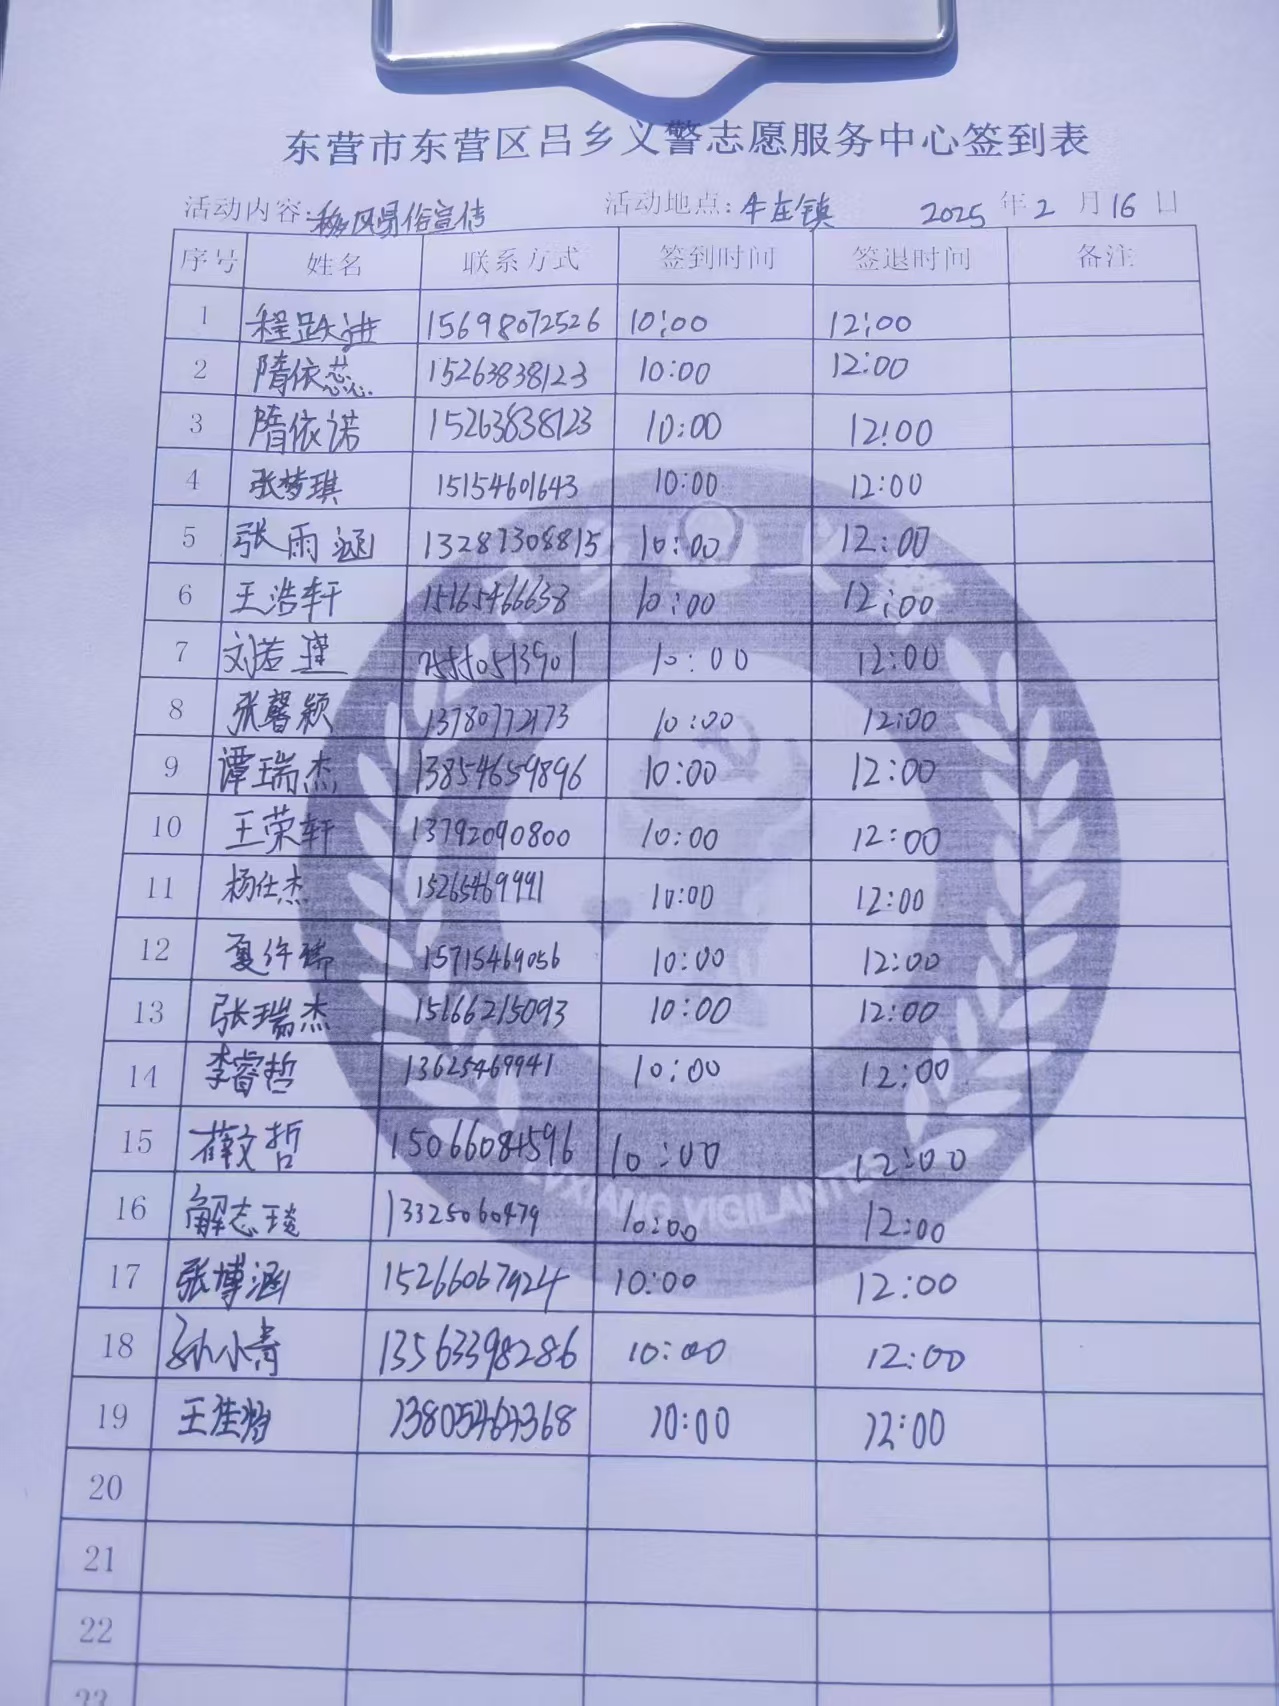 东营市东营区吕乡义警志愿服务中心签到表
活动内容:移风易俗宣传 活动地点:牛庄镇 2025年2月16日
序号 姓名 联系方式 签到时间 签退时间 备注
1 程跃进 15698072526 10:00 12:00
2 隋依蕊 15263838123 10:00 12:00
3 隋依诺 15263838123 10:00 12:00
4 张梦琪 15154601643 10:00 12:00
5 张雨涵 13287308815 10:00 12:00
6 王浩轩 15165466638 10:00 12:00
7 刘若瑾 10:00 12:00
8 张馨颖 13780772173 10:00 12:00
9 谭瑞杰 13854659896 10:00 12:00
10 王荣轩 13792090800 10:00 12:00
11 杨仕杰 15265469991 10:00 12:00
12 夏 15715469056 10:00 12:00
13 张瑞杰 15166215093 10:00 12:00
14 李睿哲 13625469941 10:00 12:00
15 薛文哲 15066084596 10:00 12:00
16 解志琰 13325060479 10:00 12:00
17 张博涵 15266067924 10:00 12:00
18 孙小青 13563398286 10:00 12:00
19 王佳 13805464368 10:00 12:00
20
21
22
23
VIGILANTE